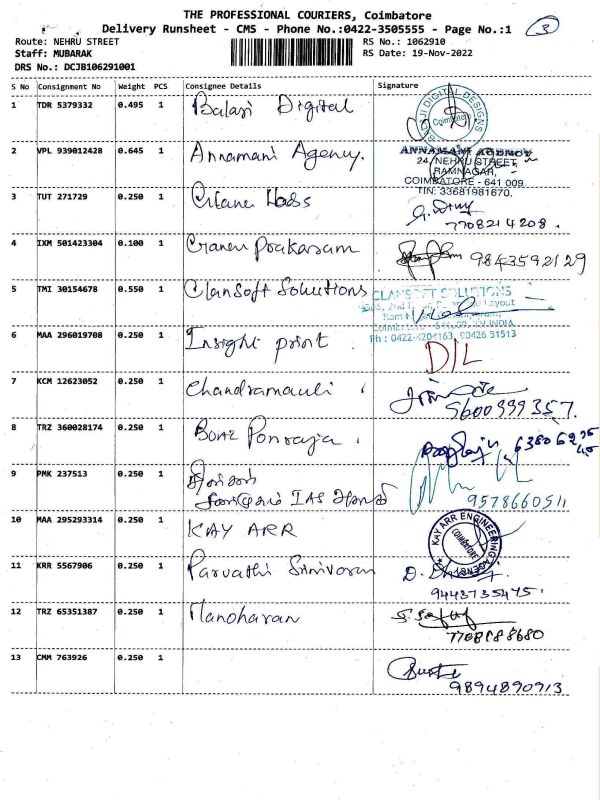 THE PROFESSIONAL COURIERS, Coimbatore
Delivery Runsheet - CMS - Phone No.:0422-3505555 - Page No.:1
3
Route: NEHRU STREET
RS No.: 1062910
Staff: MUBARAK
RS Date: 19-Nov-2022
DRS No.: DCJB106291001
S No Consignment No Weight PCS Consignee Details Signature
1 TDR 5379332 0.495 1 Balaji Digital
BALAJI DIGITAL DESIGNS
Coimbatore
2 VPL 939012428 0.645 1 Annamani Agency.
ANNAMANI AGENCY
24, NEHRU STREET,
RAMNAGAR,
COIMBATORE - 641 009.
TIN: 33681981670.
3 TUT 271729 0.250 1
7708214208.
4 IXM 501423304 0.100 1 Prakasam
9843592129
5 TMI 30154678 0.550 1 ClanSoft Solutions
CLANSOFT SOLUTIONS
Layout
INDIA
Ph : 0422-4204163, 90426 51513
6 MAA 296019708 0.250 1 Insight print
D/L
7 KCM 12623052 0.250 1 Chandramauli
5600999357.
8 TRZ 360028174 0.250 1 Ponraja
9 PMK 237513 0.250 1
IAS
9578660511
10 MAA 295293314 0.250 1 KAY ARR
KAY ARR ENGINEERING AGENCY
COIMBATORE
11 KRR 5567906 0.250 1 Parvathi Srinivasan
9443735475.
12 TRZ 65351387 0.250 1 Manoharan
13 CMM 763926 0.250 1
9894890913